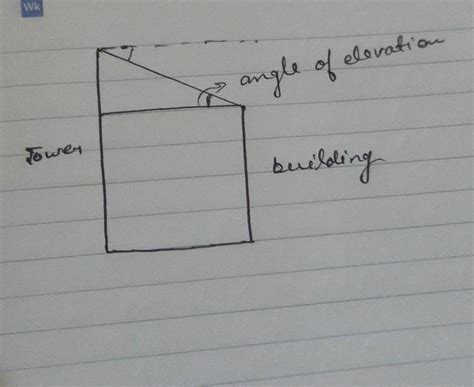 Wk
angle of elevation
Tower
building